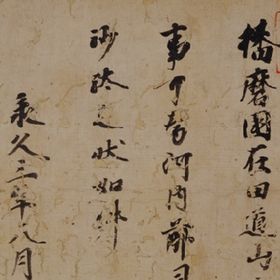 播磨國在田道山
事河内
沙汰之状如件
承久三年八月